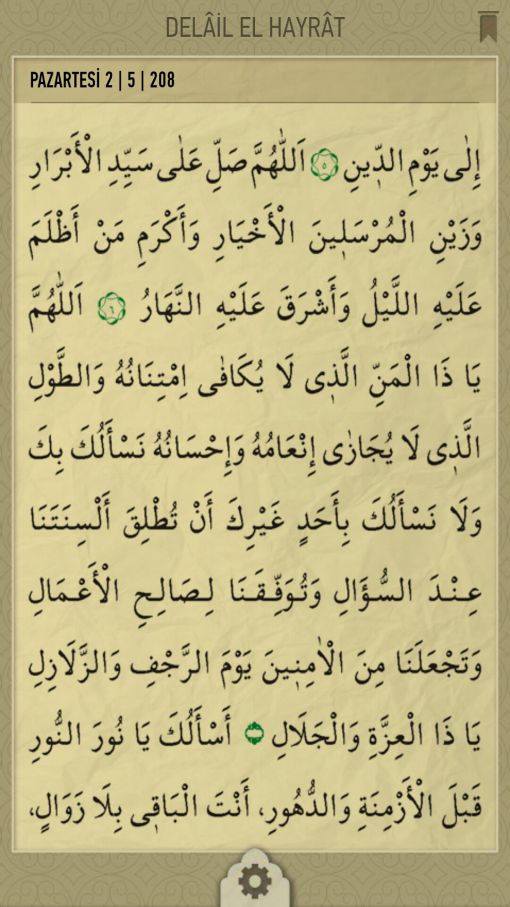 DELÂİL EL HAYRÂT
PAZARTESİ 2 | 5 | 208
إِلٰى يَوْمِ الدّ۪ينِ ٥ اَللّٰهُمَّ صَلِّ عَلٰى سَيِّدِ الْأَبْرَارِ
وَزَيْنِ الْمُرْسَل۪ينَ الْأَخْيَارِ وَأَكْرَمِ مَنْ أَظْلَمَ
عَلَيْهِ اللَّيْلُ وَأَشْرَقَ عَلَيْهِ النَّهَارُ ٦ اَللّٰهُمَّ
يَا ذَا الْمَنِّ الَّذ۪ى لَا يُكَافٰى اِمْتِنَانُهُ وَالطَّوْلِ
الَّذ۪ى لَا يُجَازٰى إِنْعَامُهُ وَإِحْسَانُهُ نَسْأَلُكَ بِكَ
وَلَا نَسْأَلُكَ بِأَحَدٍ غَيْرِكَ أَنْ تُطْلِقَ أَلْسِنَتَنَا
عِنْدَ السُّؤَالِ وَتُوَفِّقَنَا لِصَالِحِ الْأَعْمَالِ
وَتَجْعَلَنَا مِنَ الْاٰمِن۪ينَ يَوْمَ الرَّجْفِ وَالزَّلَازِلِ
يَا ذَا الْعِزَّةِ وَالْجَلَالِ أَسْأَلُكَ يَا نُورَ النُّورِ
قَبْلَ الْأَزْمِنَةِ وَالدُّهُورِ، أَنْتَ الْبَاق۪ى بِلَا زَوَالٍ،